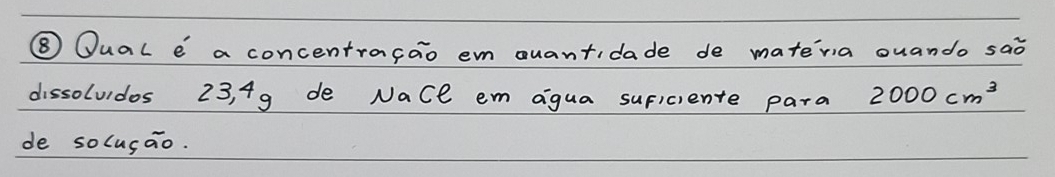 ⑧ Qual é a concentração em quantidade de matéria quando são
dissolvidos 23,4g de NaCl em água suficiente para 2000 cm³
de solução.